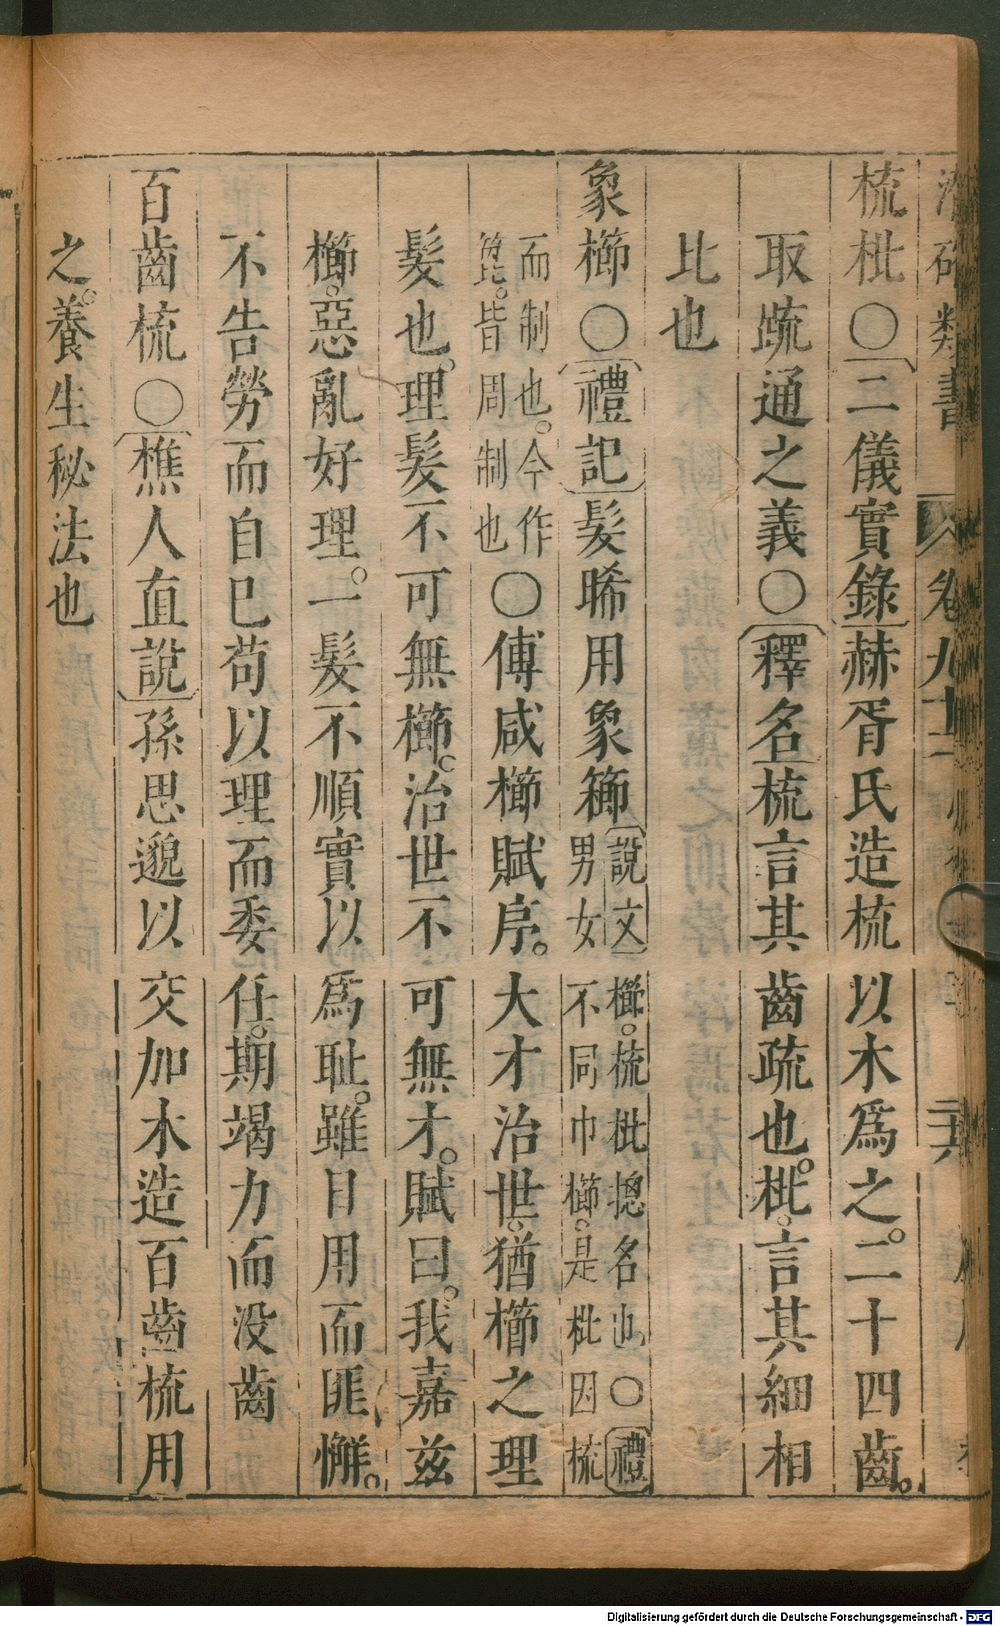 潛確類書 卷九十二
二十六
梳枇○二儀實錄赫胥氏造梳以木爲之。二十四齒。
取䟽通之義○釋名梳言其齒疏也。枇。言其細相
比也
象櫛○禮記髮晞用象櫛說文櫛。梳枇摠名也○禮男女不同巾櫛。是枇因梳
而制也。今作箆。皆周制也○傅咸櫛賦序。大才治世。猶櫛之理
髮也。理髮不可無櫛。治世不可無才。賦曰。我嘉兹
櫛。惡亂好理。一髮不順實以爲耻。雖日用而匪懈。
不告勞而自已苟以理而委任。期竭力而没齒
百齒梳○樵人直說孫思邈以交加木造百齒梳用
之。養生秘法也
Digitalisierung gefördert durch die Deutsche Forschungsgemeinschaft - DFG